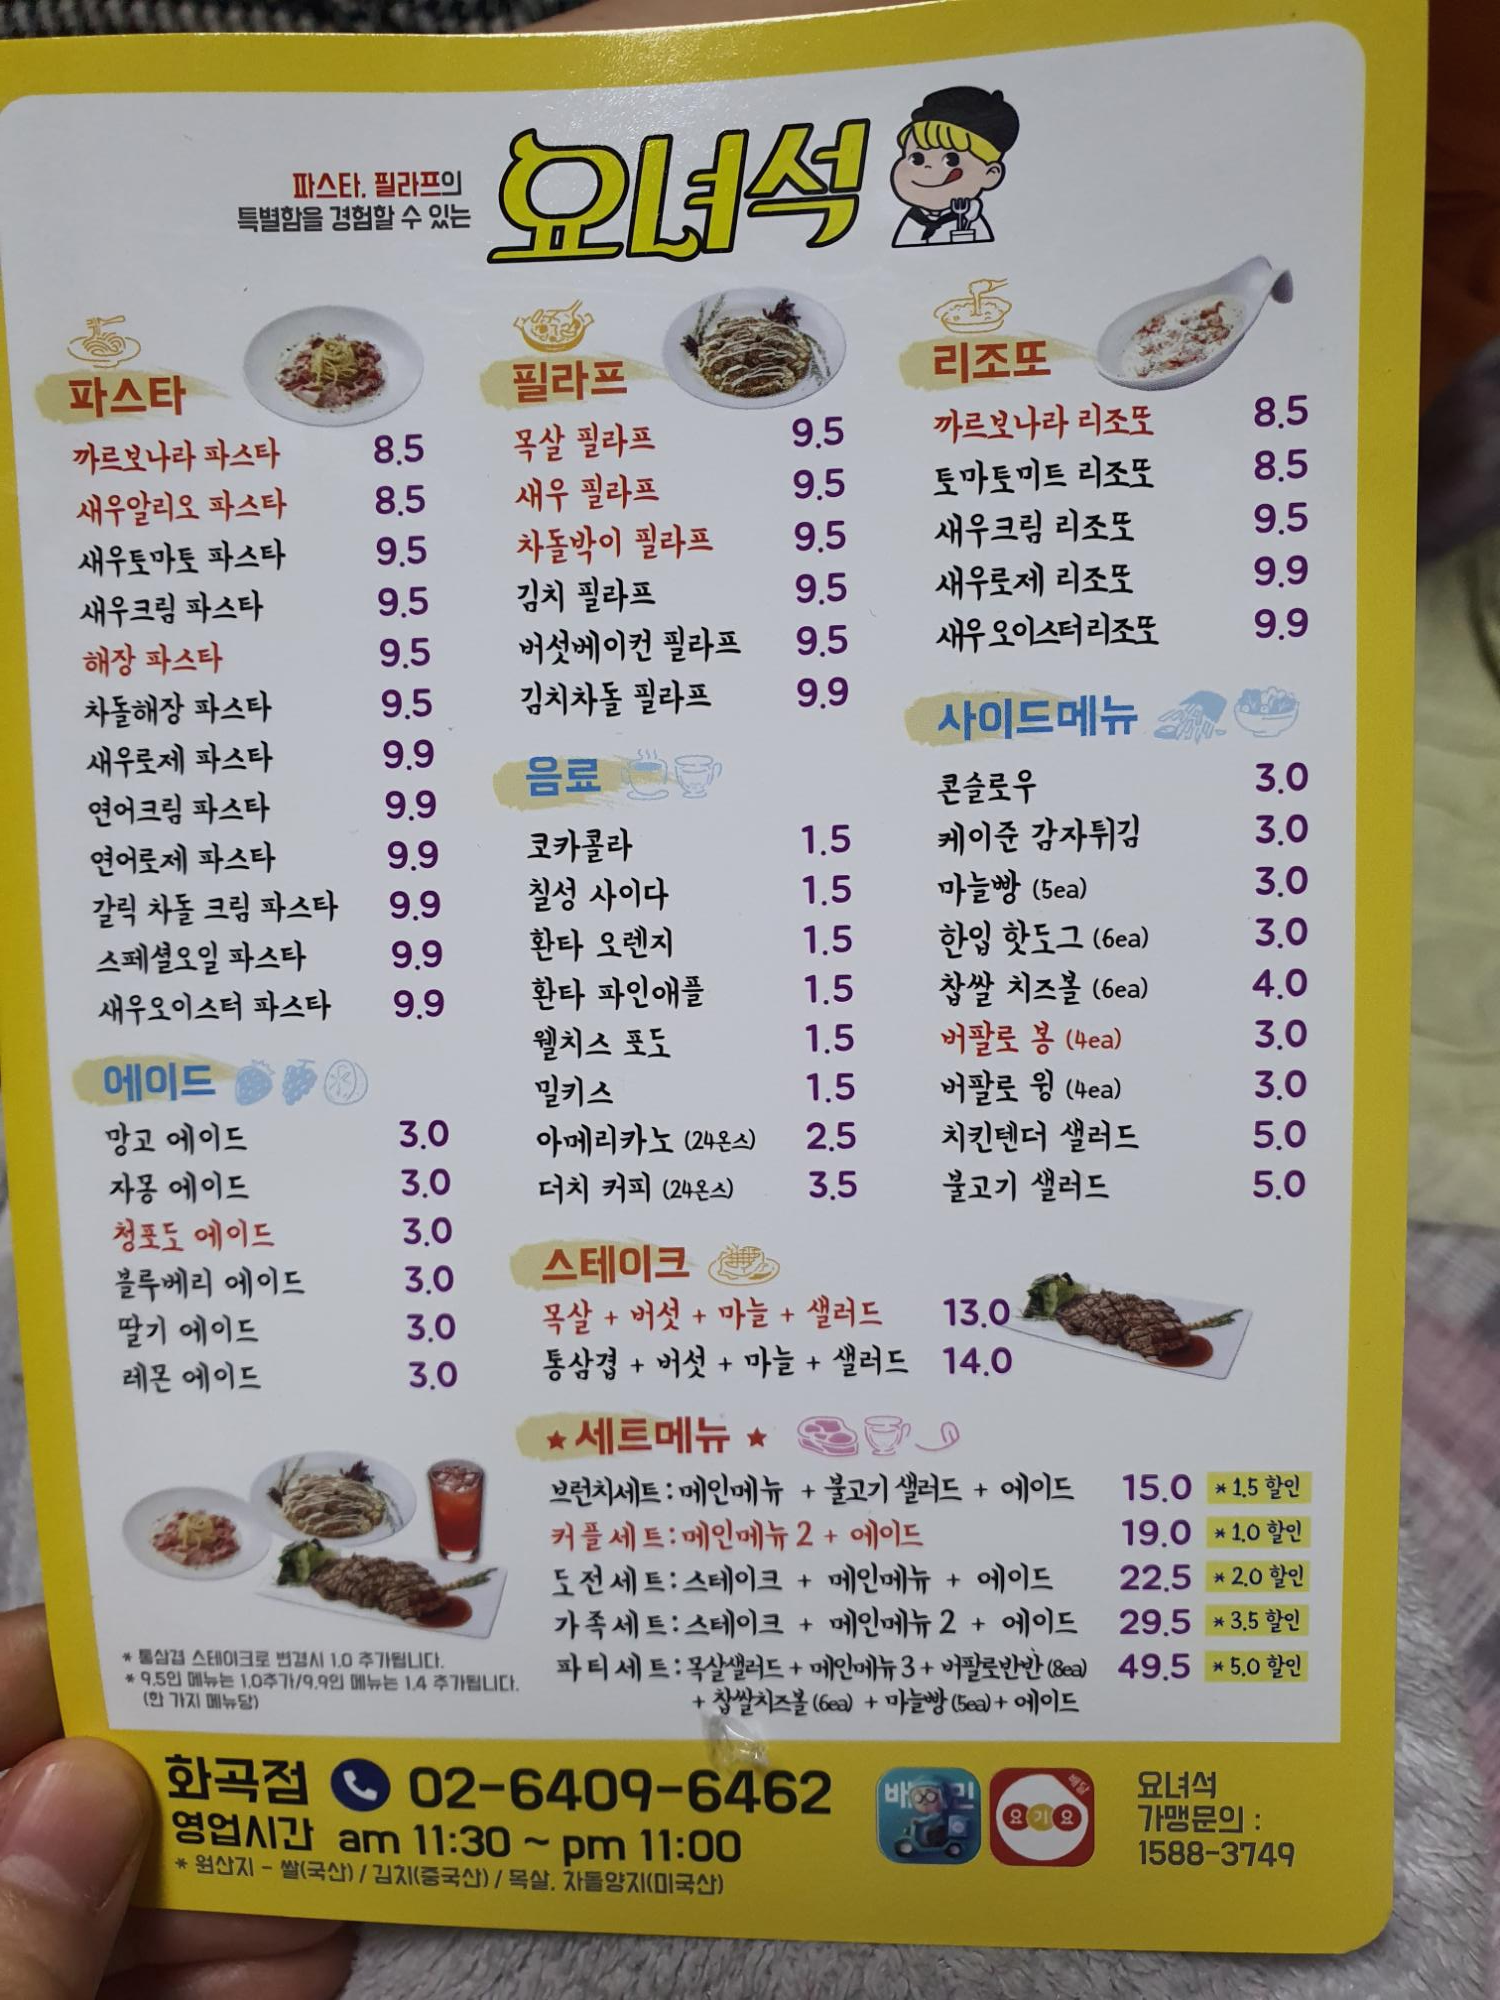 파스타, 필라프의
특별함을 경험할 수 있는
요녀석
파스타
까르보나라 파스타 8.5
새우알리오 파스타 8.5
새우토마토 파스타 9.5
새우크림 파스타 9.5
해장 파스타 9.5
차돌해장 파스타 9.5
새우로제 파스타 9.9
연어크림 파스타 9.9
연어로제 파스타 9.9
갈릭 차돌 크림 파스타 9.9
스페셜오일 파스타 9.9
새우오이스터 파스타 9.9
에이드
망고 에이드 3.0
자몽 에이드 3.0
청포도 에이드 3.0
블루베리 에이드 3.0
딸기 에이드 3.0
레몬 에이드 3.0
필라프
목살 필라프 9.5
새우 필라프 9.5
차돌박이 필라프 9.5
김치 필라프 9.5
버섯베이컨 필라프 9.5
김치차돌 필라프 9.9
음료
코카콜라 1.5
칠성 사이다 1.5
환타 오렌지 1.5
환타 파인애플 1.5
웰치스 포도 1.5
밀키스 1.5
아메리카노 (24온스) 2.5
더치 커피 (24온스) 3.5
리조또
까르보나라 리조또 8.5
토마토미트 리조또 8.5
새우크림 리조또 9.5
새우로제 리조또 9.9
새우오이스터리조또 9.9
사이드메뉴
콘슬로우 3.0
케이준 감자튀김 3.0
마늘빵 (5ea) 3.0
한입 핫도그 (6ea) 3.0
찹쌀 치즈볼 (6ea) 4.0
버팔로 봉 (4ea) 3.0
버팔로 윙 (4ea) 3.0
치킨텐더 샐러드 5.0
불고기 샐러드 5.0
스테이크
목살 + 버섯 + 마늘 + 샐러드 13.0
통삼겹 + 버섯 + 마늘 + 샐러드 14.0
★ 세트메뉴 ★
브런치세트 : 메인메뉴 + 불고기 샐러드 + 에이드 15.0 * 1.5 할인
커플세트 : 메인메뉴 2 + 에이드 19.0 * 1.0 할인
도전세트 : 스테이크 + 메인메뉴 + 에이드 22.5 * 2.0 할인
가족세트 : 스테이크 + 메인메뉴 2 + 에이드 29.5 * 3.5 할인
파티세트 : 목살샐러드 + 메인메뉴 3 + 버팔로반반 (8ea) 49.5 * 5.0 할인
+ 찹쌀치즈볼 (6ea) + 마늘빵 (5ea) + 에이드
* 통삼겹 스테이크로 변경시 1.0 추가됩니다.
* 9.5인 메뉴는 1.0추가/9.9인 메뉴는 1.4 추가됩니다.
(한 가지 메뉴당)
화곡점 02-6409-6462
영업시간 am 11:30 ~ pm 11:00
* 원산지 - 쌀(국산) / 김치(중국산) / 목살, 차돌양지(미국산)
배달
요기요
요녀석
가맹문의 :
1588-3749